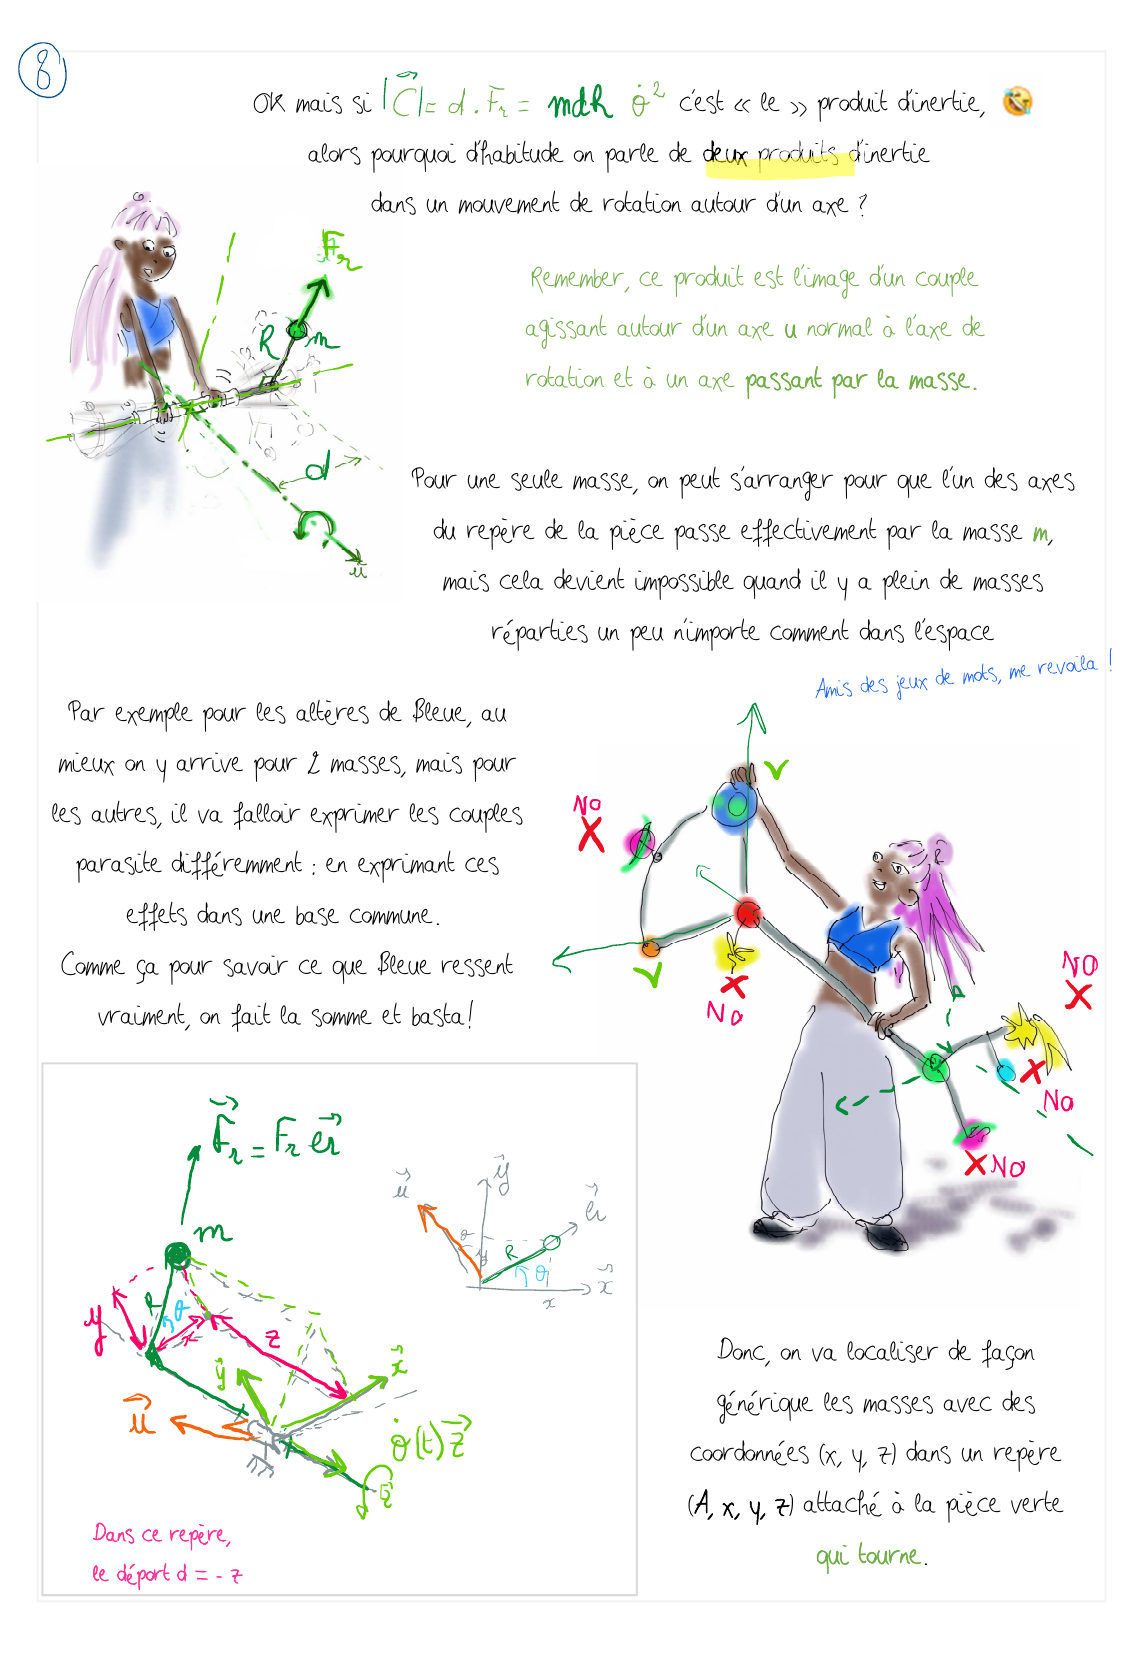 8
OK mais si |C⃗| = d . Fr = mdR θ̇² c'est « le » produit d'inertie, 🤣
alors pourquoi d'habitude on parle de deux produits d'inertie
dans un mouvement de rotation autour d'un axe ?
Fr
R
m
d
u⃗
Remember, ce produit est l'image d'un couple
agissant autour d'un axe u normal à l'axe de
rotation et à un axe passant par la masse.
Pour une seule masse, on peut s'arranger pour que l'un des axes
du repère de la pièce passe effectivement par la masse m,
mais cela devient impossible quand il y a plein de masses
réparties un peu n'importe comment dans l'espace
Amis des jeux de mots, me revoila !
Par exemple pour les altères de Bleue, au
mieux on y arrive pour 2 masses, mais pour
les autres, il va falloir exprimer les couples
parasite différemment : en exprimant ces
effets dans une base commune.
Comme ça pour savoir ce que Bleue ressent
vraiment, on fait la somme et basta!
No
No
No
No
No
F⃗r = Fr e⃗r
m
R
θ
y
x
z
y⃗
x⃗
u⃗
θ̇(t) z⃗
z⃗
u⃗
y⃗
e⃗r
θ
y
R
θ
x
x⃗
Dans ce repère,
le déport d = - z
Donc, on va localiser de façon
générique les masses avec des
coordonnées (x, y, z) dans un repère
(A, x, y, z) attaché à la pièce verte
qui tourne.